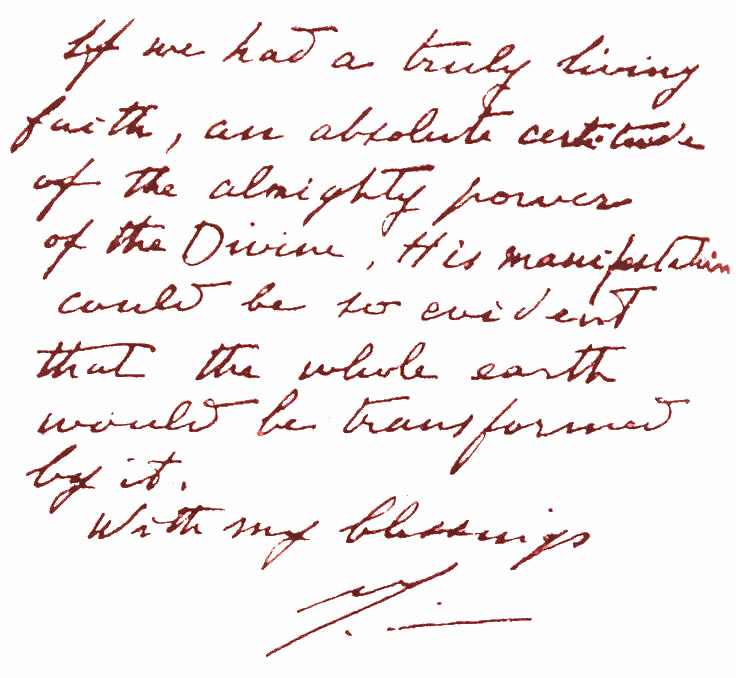 If we had a truly living
faith, an absolute certitude
of the almighty power
of the Divine, His manifestation
could be so evident
that the whole earth
would be transformed
by it.
With my blessings